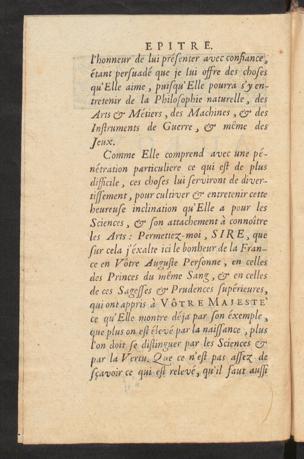 EPITRE.
l'honneur de lui présenter avec confiance,
étant persuadé que je lui offre des choses
qu'Elle aime, puisqu'Elle pourra s'y en-
tretenir de la Philosophie naturelle, des
Arts & Métiers, des Machines, & des
Instruments de Guerre, & même des
Jeux.
Comme Elle comprend avec une pé-
nétration particuliere ce qui est de plus
difficile, ces choses lui serviront de diver-
tissement, pour cultiver & entretenir cette
heureuse inclination qu'Elle a pour les
Sciences, & son attachement à connoître
les Arts: Permettez-moi, SIRE, que
sur cela j'éxalte ici le bonheur de la Fran-
ce en Vôtre Auguste Personne, en celles
des Princes du même Sang, & en celles
de ces Sagesses & Prudences supérieures,
qui ont appris à VÔTRE MAJESTÉ
ce qu'Elle montre déja par son éxemple,
que plus on est élevé par la naissance, plus
l'on doit se distinguer par les Sciences &
par la Vertu. Que ce n'est pas assez de
sçavoir ce qui est relevé, qu'il faut aussi